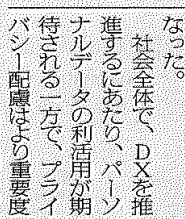 なった。
　社会全体で、ＤＸを推
進するにあたり、パーソ
ナルデータの利活用が期
待される一方で、プライ
バシー配慮はより重要度